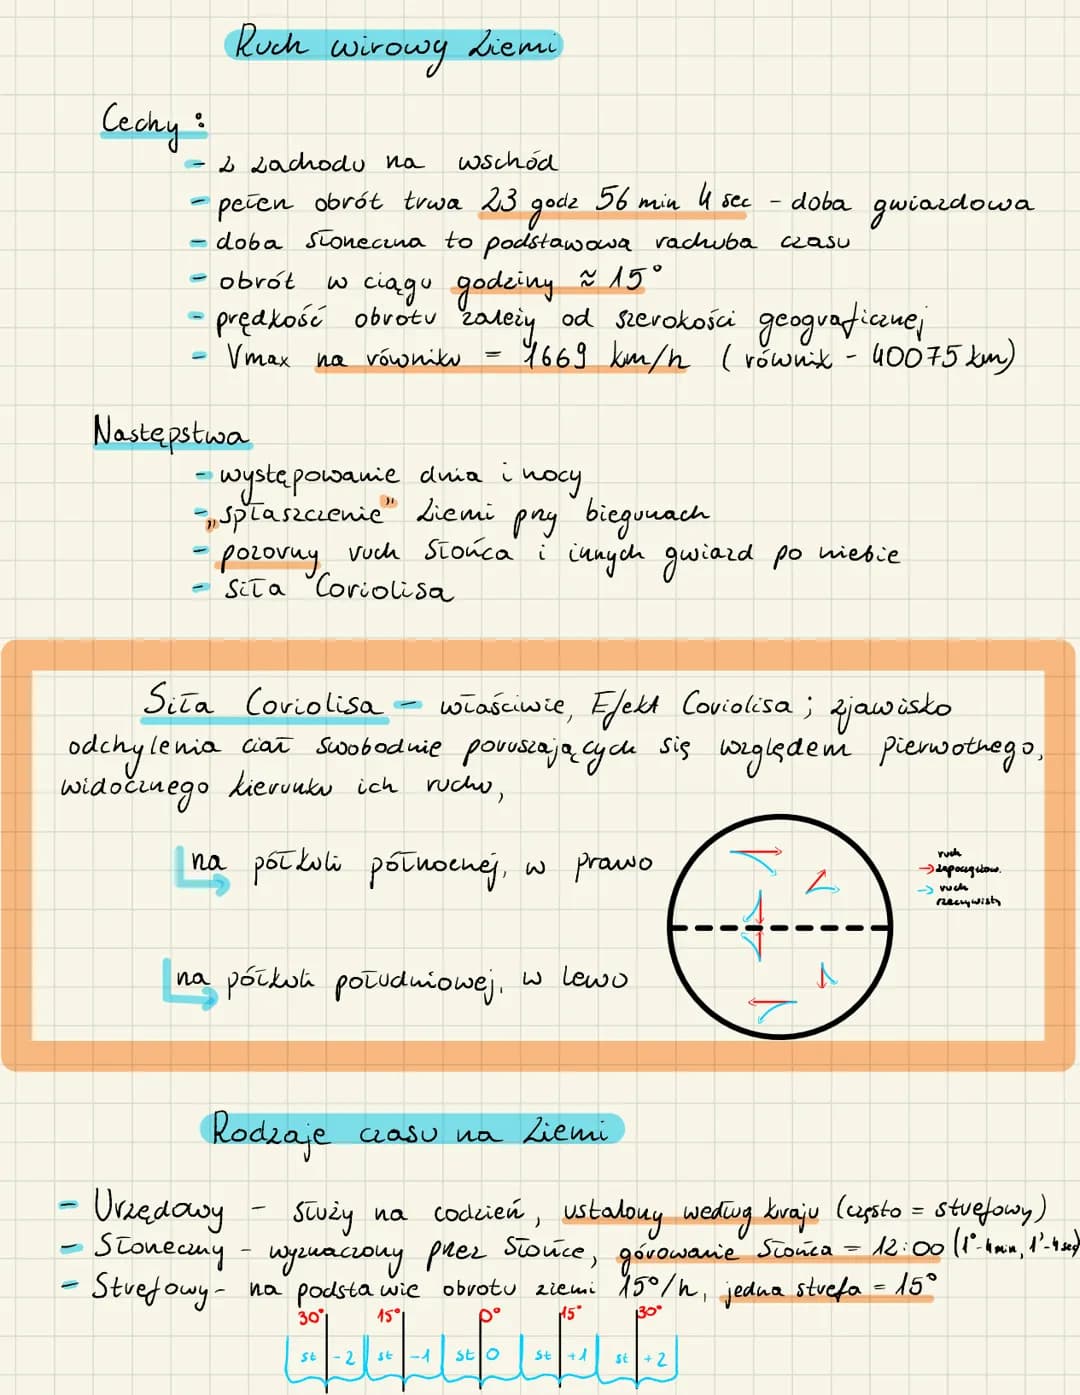 Ruch wirowy Ziemi
Cechy:
- z zachodu na wschód
- pełen obrót trwa 23 godz 56 min 4 sec - doba gwiazdowa
- doba słoneczna to podstawowa rachuba czasu
- obrót w ciągu godziny ≈ 15°
- prędkość obrotu zależy od szerokości geograficznej
- Vmax na równiku = 1669 km/h (równik - 40075 km)
Następstwa
- występowanie dnia i nocy
- „spłaszczenie" Ziemi przy biegunach
- pozorny ruch Słońca i innych gwiazd po niebie
- siła Coriolisa
Siła Coriolisa - właściwie, Efekt Coriolisa; zjawisko
odchylenia ciał swobodnie poruszających się względem pierwotnego,
widocznego kierunku ich ruchu,
na półkuli północnej, w prawo
ruch
→ zapoczątkow.
→ ruch
rzeczywisty
na półkuli południowej, w lewo
Rodzaje czasu na Ziemi
- Urzędowy - służy na codzień, ustalony według kraju (często = strefowy)
- Słoneczny - wyznaczony przez Słońce, górowanie Słońca = 12:00 (1°-4min, 1'-4sec)
- Strefowy - na podstawie obrotu ziemi 15°/h, jedna strefa = 15°
30° 15° 0° 15° 30°
st -2 st -1 st 0 st +1 st +2